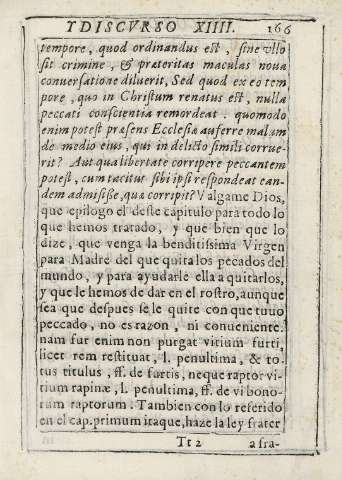 Y DISCVRSO XIIII. 166
tempore, quod ordinandus est, sine vllo
sit crimine, & præteritas maculas noua
conuersatione diluerit, Sed quod ex eo tem
pore, quo in Christum renatus est, nulla
peccati conscientia remordeat. quomodo
enim potest præsens Ecclesiæ auferre malum
de medio eius, qui in delicto simili corrue-
rit? Aut qua libertate corripere peccantem
potest, cum tacitus sibi ipsi respondeat ean-
dem admisisse, quæ corripit? Valgame Dios,
que epilogo el deste capitulo para todo lo
que hemos tratado, y que bien que lo
dize, que venga la benditissima Virgen
para Madre del que quita los pecados del
mundo, y para ayudarle ella a quitarlos,
y que le hemos de dar en el rostro, aunque
sea que despues se le quite con que tuuo
peccado, no es razon, ni conueniente.
nam fur enim non purgat vitium furti,
licet rem restituat, l. penultima, & to-
tus titulus, ff. de furtis, neque raptor vi-
tium rapinæ, l. penultima, ff. de vi bono-
rum raptorum. Tambien con lo referido
en el cap. primum itaque, haze la ley frater
Tt 2 a fra-